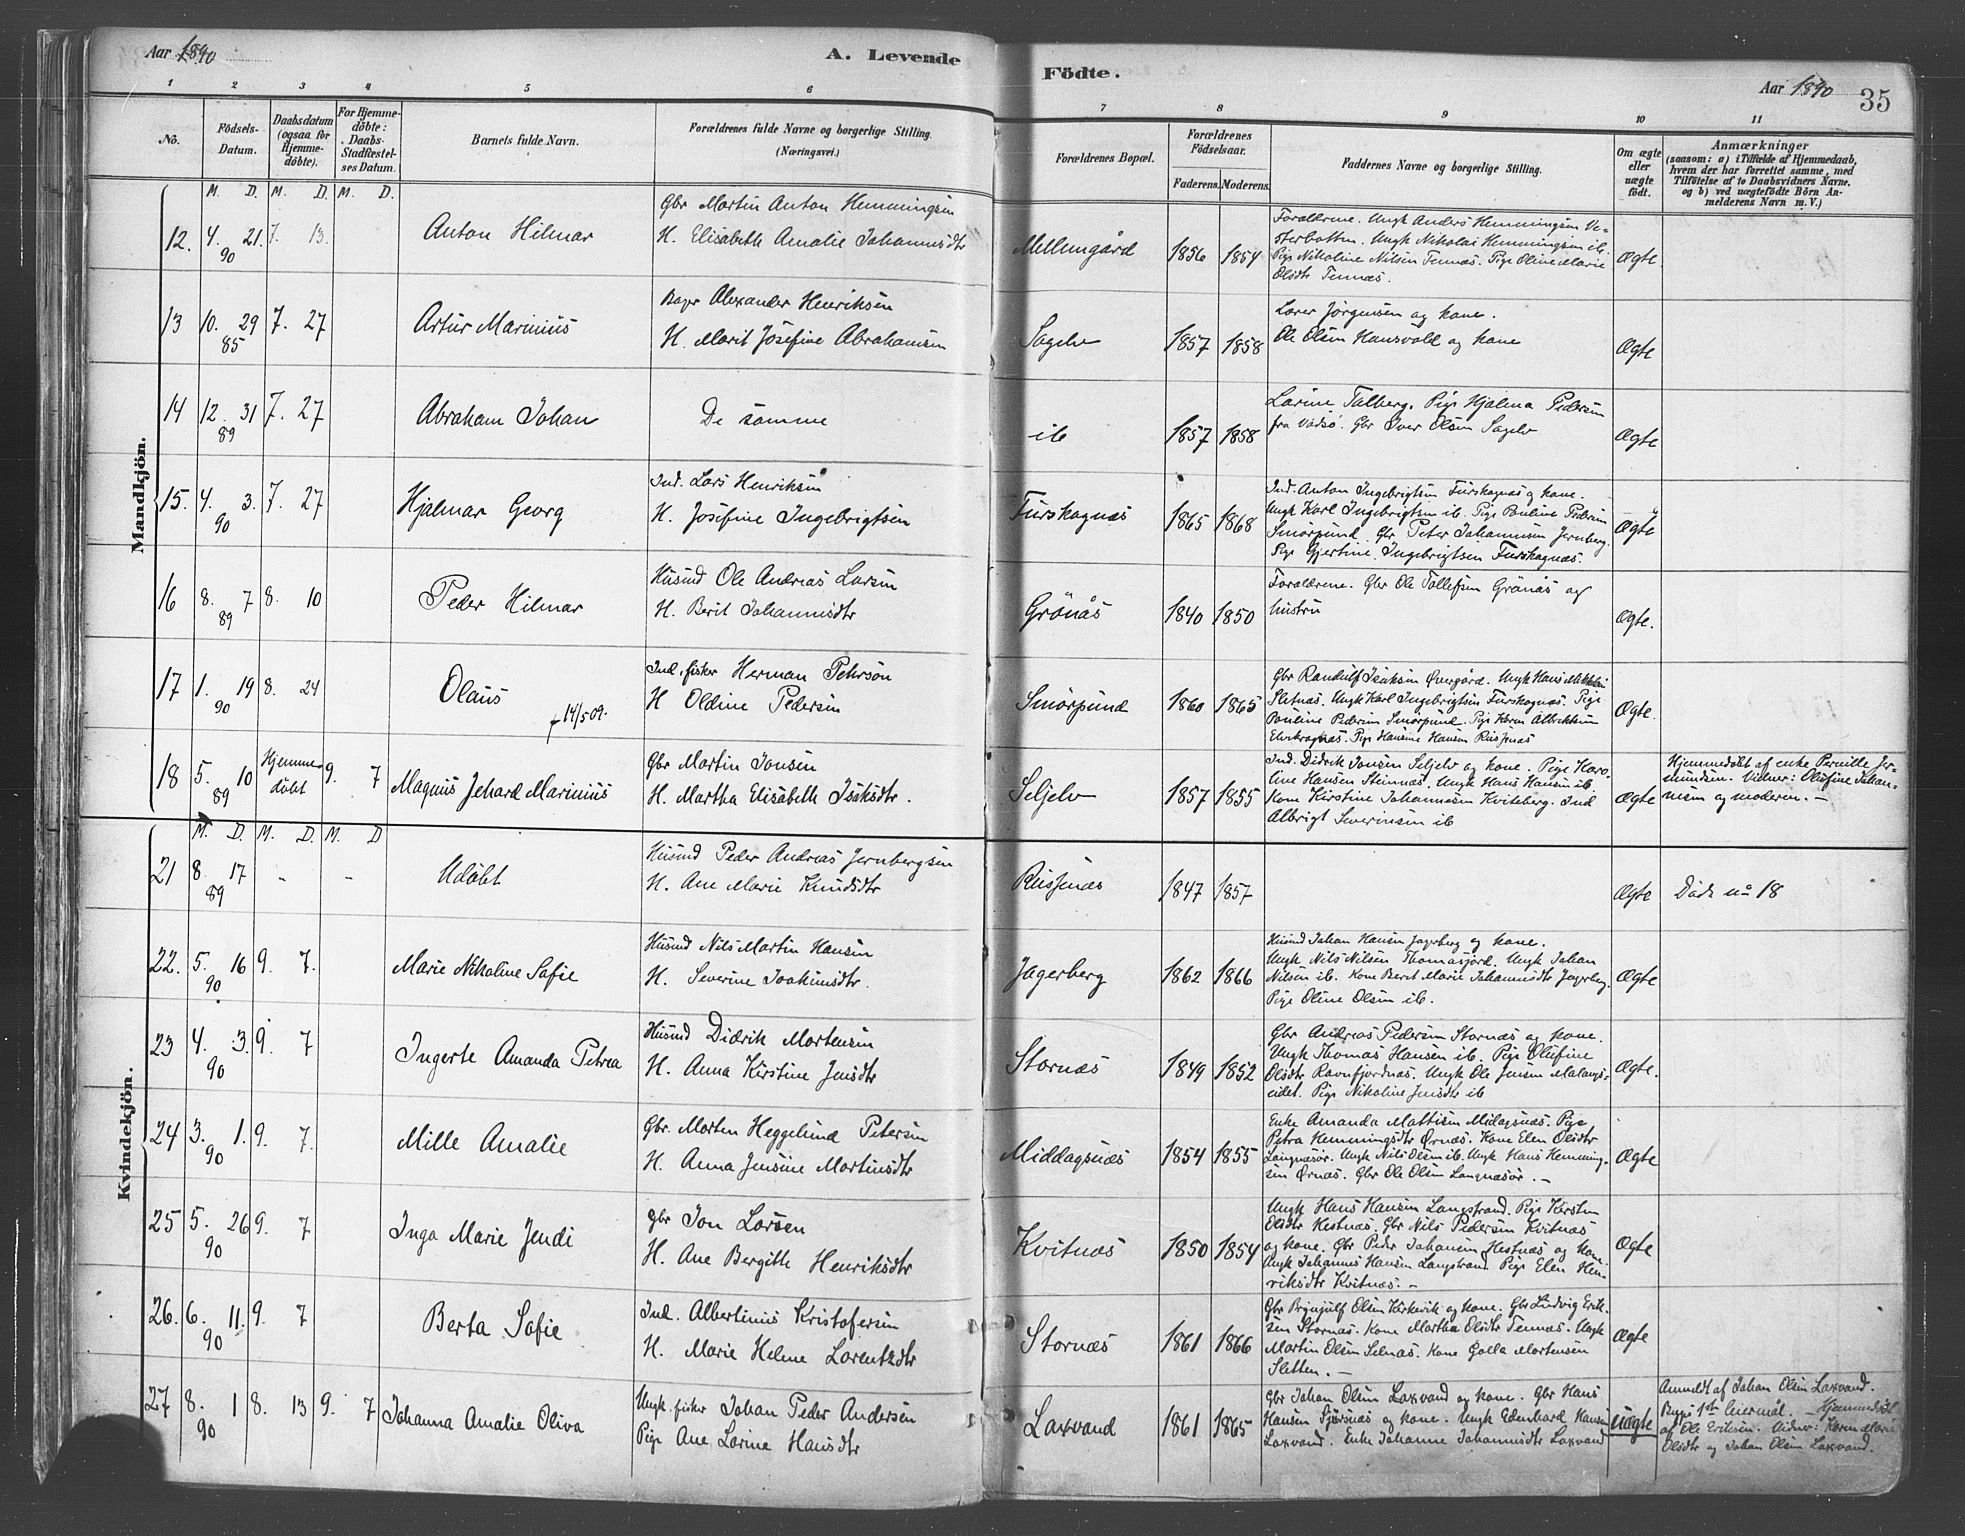 Aar 1890
A. Levende
Födte.
Aar 1890
35
1 2 3 4 5 6 7 8 9 10 11
No.
Födsels-
Datum.
Daabsdatum
(ogsaa for
Hjemme-
döbte).
For Hjemme-
döbte:
Daabs-
Stadfæstel-
ses Datum.
Barnets fulde Navn.
Forældrenes fulde Navne og borgerlige Stilling.
(Næringsvei.)
Forældrenes Bopæl.
Forældrenes
Födselsaar.
Faderens. Moderens.
Faddernes Navne og borgerlige Stilling.
Om ægte
eller
uægte
födt.
Anmærkninger
(saasom: a) i Tilfælde af Hjemmedaab,
hvem der har forrettet samme, med
Tilföielse af to Daabsvidners Navne,
og b) ved uægtefödte Börn An-
melderens Navn m. V.)
Mandkjön.
M. D. M. D. M. D.
12. 4. 21. 7. 13.
90
Anton Hilmar
Gbr Martin Anton Hemmingsen
H. Elisabeth Amalie Johannisdtr
Mellemgård 1856 1854
Forældrene. Ungk Anders Hemmingsen Ve-
sterbotten. Ungk Nikolai Hemmingsen ib.
Pige Nikoline Nilsen Tennæs. Pige Oline Marie
Olsdtr Tennæs.
Ægte.
13 10. 29 7. 27
85
Artur Marinius
Bager Alexander Henriksen
H. Marit Josefine Abrahamsen
Sagelv 1857 1858
Lærer Jörgensen og kone.
Ole Olsen Hansvold og kone
Ægte
14 12. 31 7. 27
89
Abraham Johan
De samme
ib 1857 1858
Larine Talberg. Pige Hjalma Pedersen
fra Vadsö. Gbr Iver Olsen Sagelv
Ægte
15. 4. 3. 7. 27
90
Hjalmar Georg
Ind. Lars Henriksen
H. Josefine Ingebrigtsen
Furskognæs 1865 1868
Ind. Anton Ingebrigtsen Furskognæs og kone.
Ungk Karl Ingebrigtsen ib. Pige Pauline Pedersen
Smörpund. Gbr Peter Johannesen Jernberg.
Pige Gjertine Ingebrigtsen Furskognæs.
Ægte
16 8. 7 8. 10
89
Peder Hilmar
Husmd Ole Andreas Larsen
H. Berit Johannisdtr
Grönås 1840 1850
Forældrene. Gbr Ole Tollefsen Grönås og
hustru
Ægte.
17 1. 19 8. 24
90
Olaus
† 14/5 09.
Ind. fisker Herman Peterson
H Oldine Pedersen
Smörpund 1860 1865
Gbr Randulf Isaksen Övergård. Ungk Hans Mikkelsen
Sletnæs. Ungk Karl Ingebrigtsen Furskognæs. Pige
Pauline Pedersen Smörpund. Pige Karen Albriktsen
Pige Hansine Hansen Russenæs
Ægte.
18 5. 10 Hjemme- 9. 7
89 döbt
Magnus Jehard Marinius
Gbr Martin Jonsen
H. Martha Elisabeth Isaksdtr.
Seljelv 1857 1855
Ind. Didrik Jonsen Seljelv og kone. Pige Karo-
line Hansen Steinnæs. Ungk Hans Hansen ib.
Kone Kirstine Johannesen Kviteberg. Ind
Albrigt Severinsen ib
Ægte
Hjemmedöbt af enke Pernille Jer-
mundsen. Vidner: Olufine Johan-
nesen og moderen. –
Kvindekjön.
M. D. M. D. M. D
21 8. 17 - -
89
Udöbt
Husmd Peder Andreas Jernbergsen
H. Ane Marie Knudsdtr
Russenæs 1847 1857
Ægte
Döde no 18
22. 5. 16 9. 7.
90
Marie Nikoline Sofie
Husmd Nils Martin Hansen
H. Severine Joakimsdtr.
Jagerberg 1862 1866
Husmd Johan Hansen Jagerberg og kone.
Ungk Nils Nilsen Thomasjord. Ungk Johan
Nilsen ib. Kone Berit Marie Johannisdtr Jagerberg.
Pige Oline Olsen ib.
Ægte
23 4. 3. 9. 7
90
Ingerte Amanda Petrea
Husmd Didrik Mortensen
H. Anna Kirstine Jensdtr
Stornæs 1849 1852
Gbr Andreas Pedersen Stornæs og kone.
Ungk Thomas Hansen ib. Pige Olufine
Olsdtr Ravnfjordnæs. Ungk Ole Jensen Malangs-
eidet. Pige Nikoline Jensdtr ib
Ægte.
24 3. 1. 9. 7.
90
Mille Amalie
Gbr. Morten Heggelund Petersen
H. Anna Jensine Martinsdtr
Middagsnæs 1854 1855
Enke Amanda Mattisen Midagsnæs. Pige
Petra Hemmingsdtr Örnæs. Kone Elen Olsdtr
Langnæsör. Ungk Nils Olsen ib. Ungk Hans Hemming-
sen Örnæs. Gbr Ole Olsen Langnæsör. –
Ægte
25 5. 26 9. 7
90
Inga Marie Jendi
Gbr Jon Larsen
H. Ane Bergitte Henriksdtr
Kvitnæs 1850 1854
Ungk Hans Hansen Langstrand. Pige Kirsten
Elisdtr Hestnæs. Gbr Nils Pedersen Kvitnæs
og kone. Gbr Peder Johansen Hestnæs og kone
Ungk Johannes Hansen Langstrand Pige Elen Hen-
riksdtr Kvitnæs. –
Ægte
26. 6. 11. 9. 7
90
Berta Sofie
Ind. Albertinius Kristofersen
H. Marie Helene Lorentzdtr
Stornæs 1861 1866
Gbr Brynjulf Olsen Kirkevik og kone. Gbr Ludvig Erik-
sen Stornæs. Kone Martha Olsdtr Tennæs. Ungk
Martin Olsen Selnæs. Kone Golla Mortensen
Sletten. –
Ægte
27 8. 1 8. 13 9. 7
90
Johanna Amalie Oliva
Ungk. fisker Johan Peder Andersen
Pige Ane Larine Hansdtr
Laxvand 1861 1865
Gbr Johan Olsen Laxvand og kone. Gbr Hans
Hansen Sjörsnæs og kone. Ungk Edenhard Hansen
Laxvand. Enke Johanne Johannisdtr Laxvand
uægte
Anmeldt af Johan Olsen Laxvand.
Begges 1ste leiermål. – Hjemmedöbt
af Ole Eriksen. Vidner: Karen Marie
Olsdtr og Johan Olsen Laxvand.